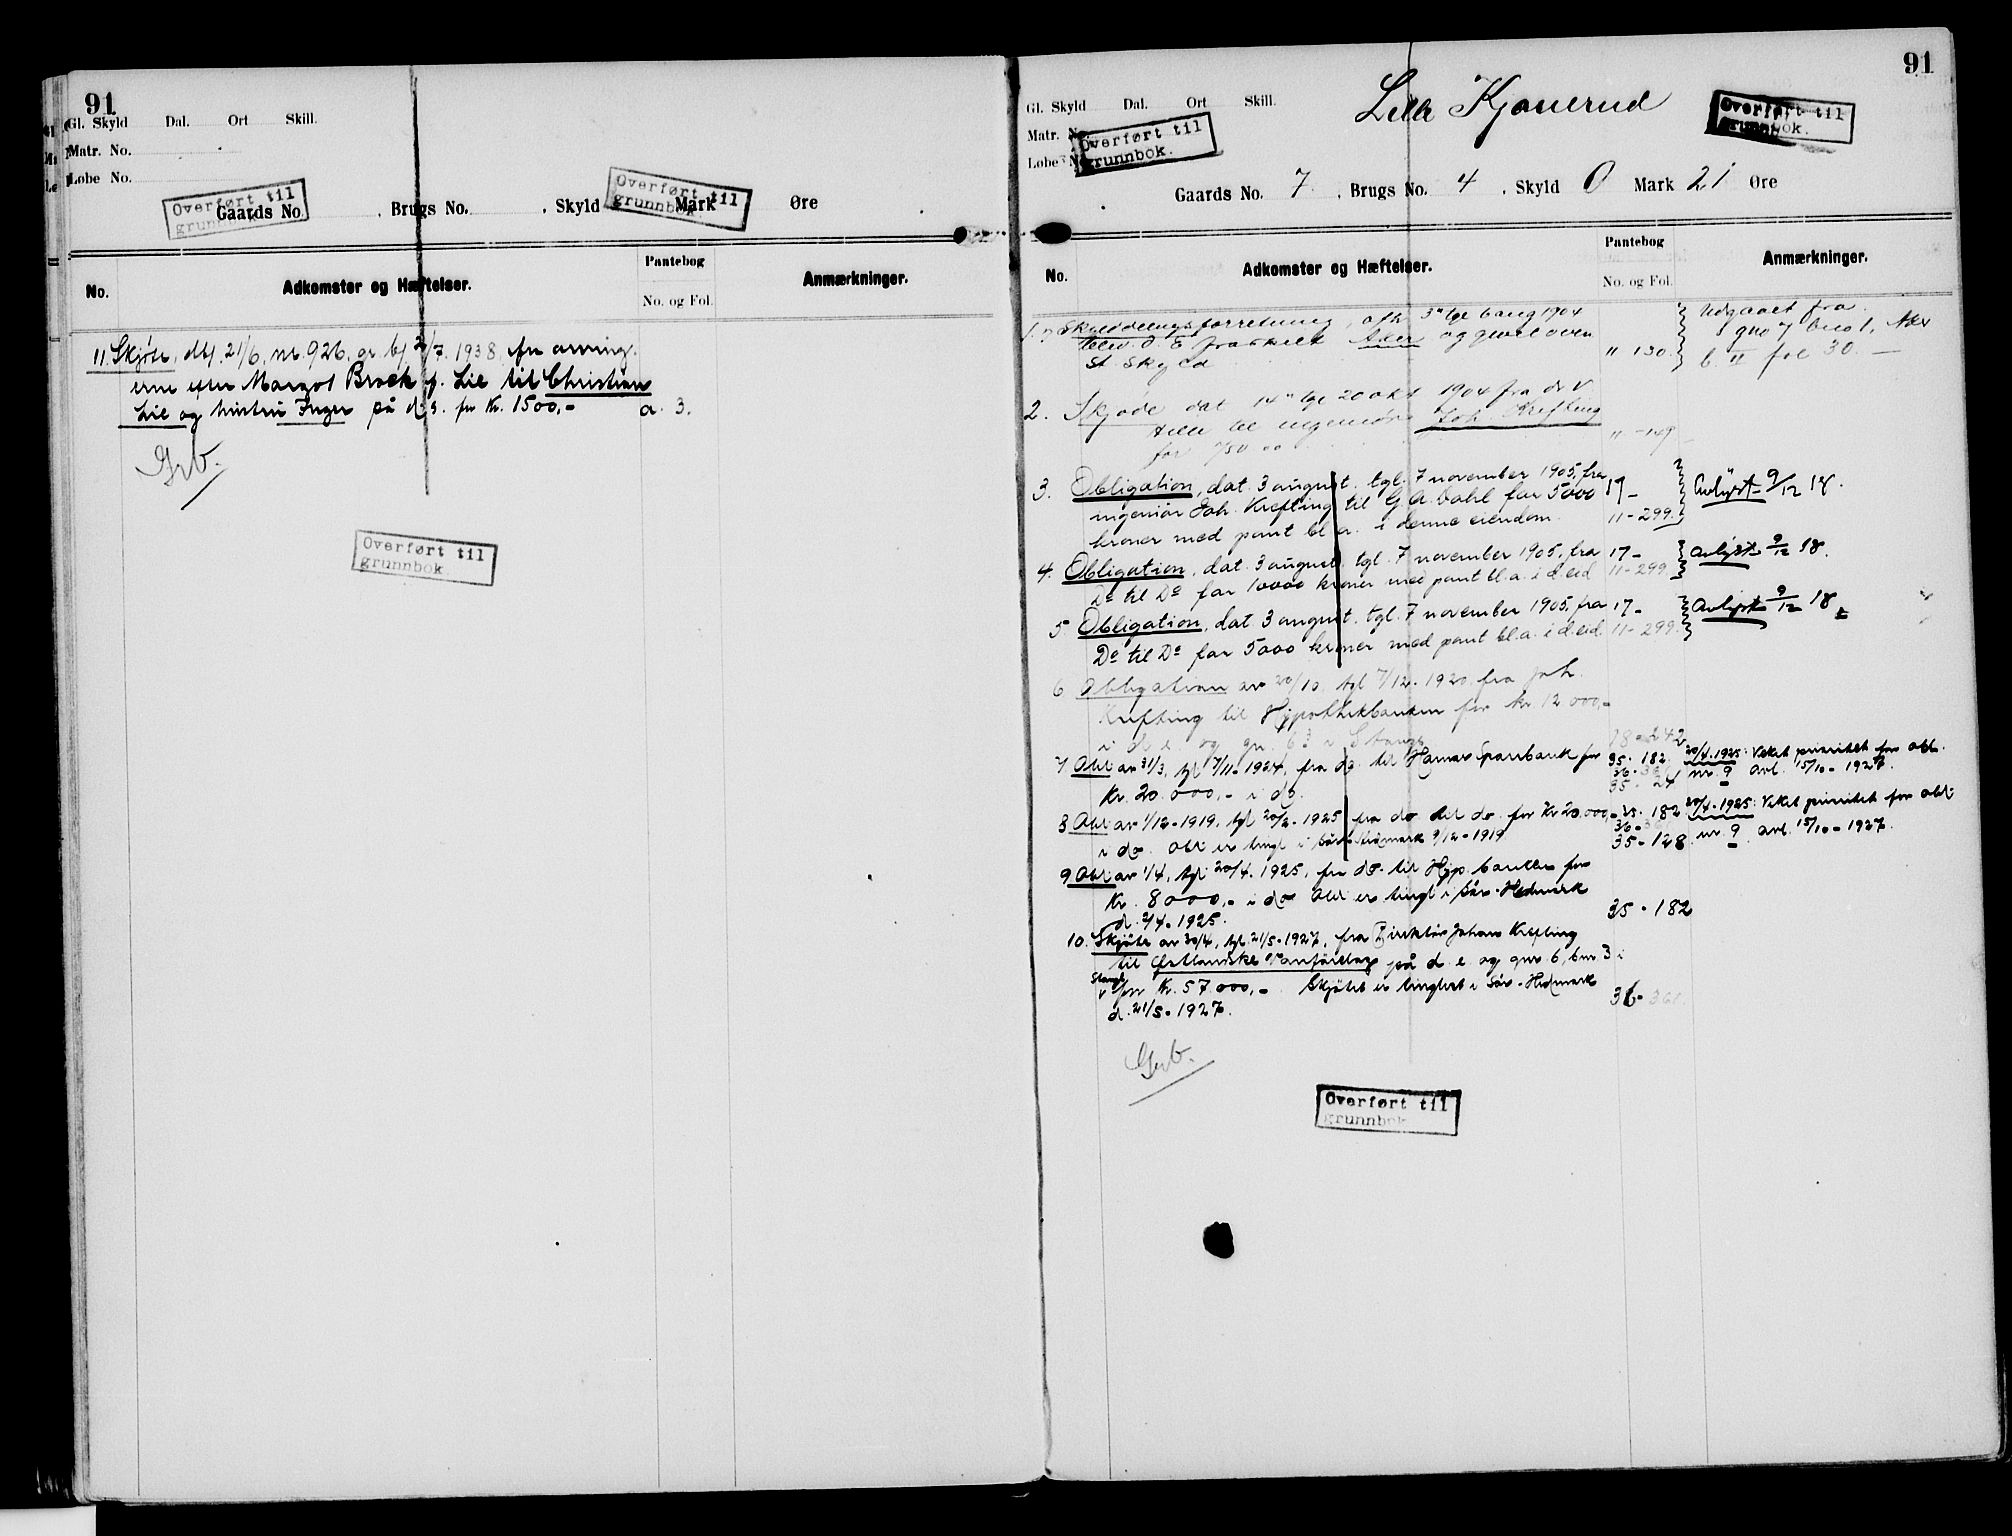 91
Gl. Skyld Dal. Ort Skill.
Matr. No.
Løbe No.
Overført til
grunnbok.
Overført til
grunnbok.
Gaards No. , Brugs No. , Skyld Mark Øre
No. Adkomster og Hæftelser. Pantebog No. og Fol. Anmærkninger.
11. Skjøte, dbf. 21/6, nr. 926, gr. bf 2/7. 1938, fra arving-
erne efter Margot f. Lie til Christian
Lie og hustru Inger på d. e. for Kr. 1500,- a. 3.
Grb.
Overført til
grunnbok.
91
Gl. Skyld Dal. Ort Skill.
Matr. No.
Løbe No.
Overført til
grunnbok.
Lille Kjonerud
Overført til
grunnbok.
Gaards No. 7. , Brugs No. 4 , Skyld 0 Mark 21 Øre
No. Adkomster og Hæftelser. Pantebog No. og Fol. Anmærkninger.
1. Skylddelingsforretning, afh. 3die tgl 6 aug 1904 Udgaaet fra
blev d. E fraskilt Aker og givet oven gno 7 bno 1, Aker
st. Skyld " 130. b. II fol 30. —
2. Skjøde dat 14de tgl 20 okt 1904 fra
til ingeniør Joh. Krefting
for 750 00 " - 149
3. Obligation, dat. 3 august. tgl. 7 november 1905, fra 17- Avlyst 9/12 18.
ingeniør Joh. Krefting til G. A. Dahl for 5000 11-299.
kroner med pant bl. a. i denne eiendom.
4. Obligation, dat. 3 august tgl. 7 november 1905, fra 17- Avlyst 9/12 18.
Do til Do for 10000 kroner med pant bl. a. i d. eid 11-299.
5. Obligation, dat 3 august. tgl. 7 november 1905, fra 17- Avlyst 9/12 18.
Do til Do for 5000 kroner med pant bl. a. i d. eid. 11-299.
6 Obligation av 20/10, tgl 7/12. 1920 fra Joh.
Krefting til Hypothekbanken for kr 12 000,-
i d. e. og gn. 6 3 i Stange 18-242
7 Obl av 31/3, tgl 7/11. 1924, fra do. til Hamar Sparebank for 35. 182. 20/4. 1925: Veket prioritet for obl.
Kr. 20 000,- i do. 35 - 24 nr. 9 avl. 15/10 - 1927.
8 Obl av 1/12-1919, tgl 20/2. 1925 fra do til do. for Kr 20.000,- 35. 182 20/4. 1925: Veket prioritet for obl.
i do. Obl er tingl i Sør-Hedmark 9/12 - 1919 35-128. nr. 9 avl. 15/10 - 1927.
9 Obl av 1/4, tgl 20/4. 1925, fra do. til Hyp. banken for
Kr. 8000,- i do Obl er tingl i Sør-Hedmark
d. 2/4. 1925. 35 - 182
10. Skjøte av 30/4, tgl. 21/5. 1927, fra Direktør Johan Krefting
til Østlandske på d. e og gnr. 6, bnr. 3 i
Stange for Kr. 57.000,- Skjøtet er tinglest i Sør-Hedmark
d. 21/5. 1927. 36- 361.
Grb.
Overført til
grunnbok.